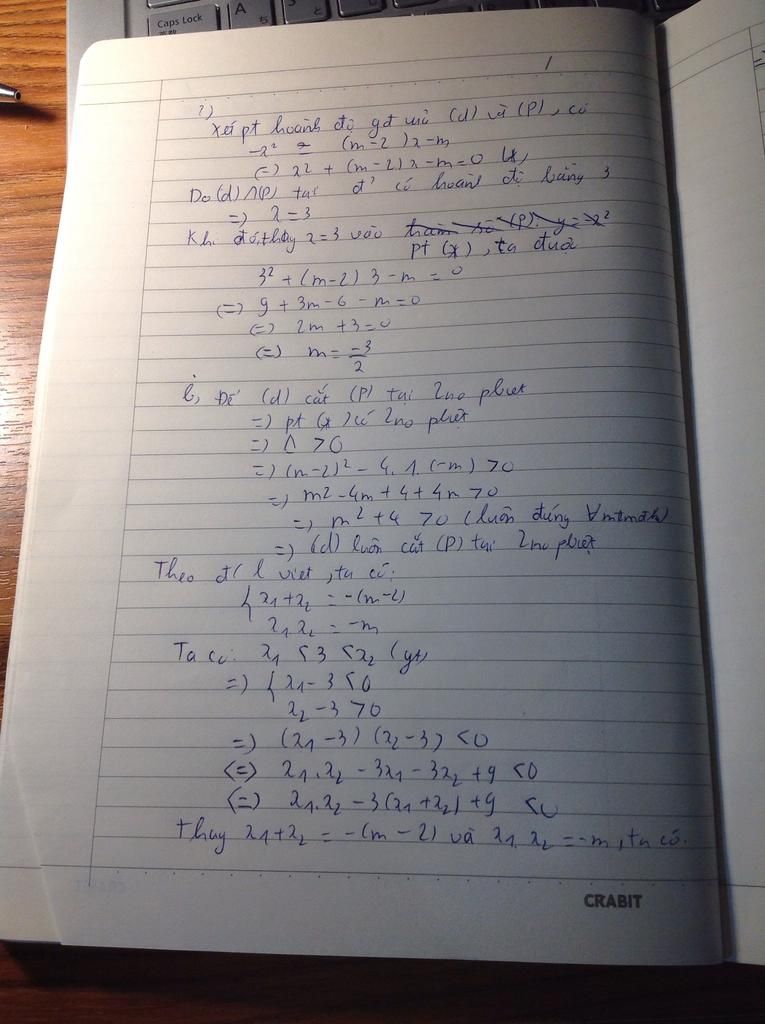 Caps Lock
A
ち
S
と
1
2)
Xét pt hoành độ gđ của (d) và (P), có
-x² = (m-2)x-m
(=) x² + (m-2)x-m=0 (*)
Do (d)∩(P) tại đ' có hoành độ bằng 3
=) x=3
Khi đó, thay x=3 vào hàm số (P): y=-x²
pt (*), ta được
3² + (m-2) 3 - m = 0
(=) 9 + 3m - 6 - m = 0
(=) 2m + 3 = 0
(=) m = -3/2
b, Để (d) cắt (P) tại 2no pbiệt
=) pt (*) có 2no pbiệt
=) Δ > 0
=) (m-2)² - 4. 1. (-m) > 0
=) m² - 4m + 4 + 4m > 0
=) m² + 4 > 0 (luôn đúng ∀mtmđk)
=) (d) luôn cắt (P) tại 2no pbiệt
Theo đ/l viet, ta có:
{ x1+x2 = -(m-2)
x1.x2 = -m
Ta có: x1 < 3 < x2 (gt)
=) { x1-3 < 0
x2-3 > 0
=) (x1-3) (x2-3) < 0
(=) x1.x2 - 3x1 - 3x2 + 9 < 0
(=) x1.x2 - 3(x1+x2) + 9 < 0
thay x1+x2 = -(m-2) và x1.x2 = -m, ta có.
CRABIT